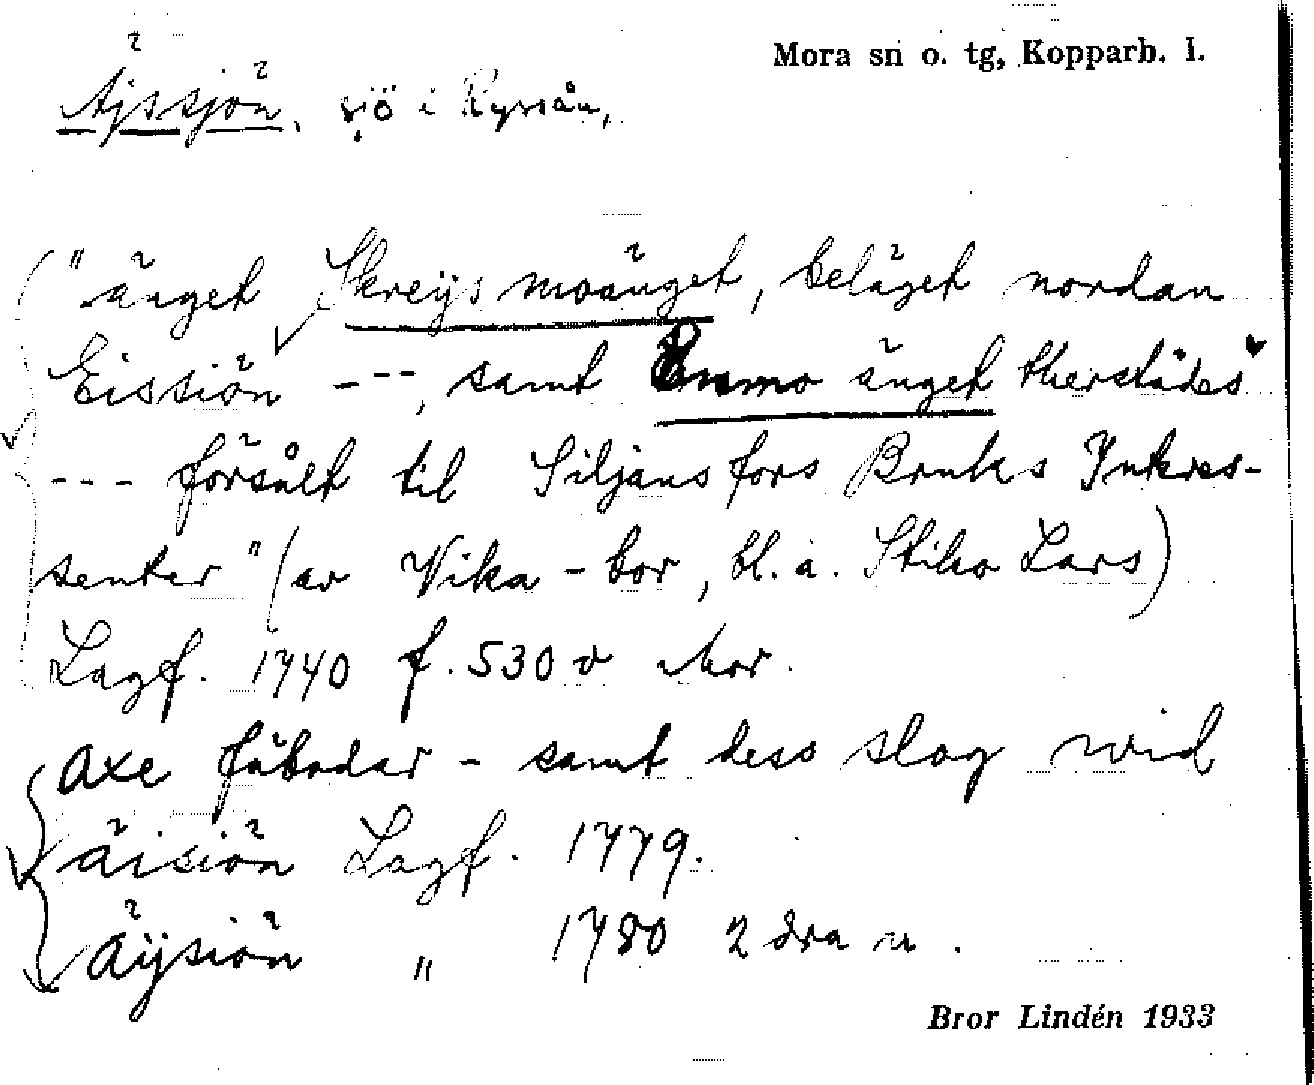 Mora sn o. tg, Kopparb. l.
Äjssjön, sjö i Ryssån,
("änget Skreijsmoänget, beläget nordan
Eissiön ---, samt Enmo änget therstädes
--- försålt til Siljansfors Bruks Intres-
senter" (av Vika-bor, bl. a. Stiko Lars)
Lagf. 1740 f. 530 v Mor.
Axe fäbodar - samt dess slog wid
äisiön Lagf. 1779.
äÿsiön " 1780 2 dra u.
Bror Lindén 1933